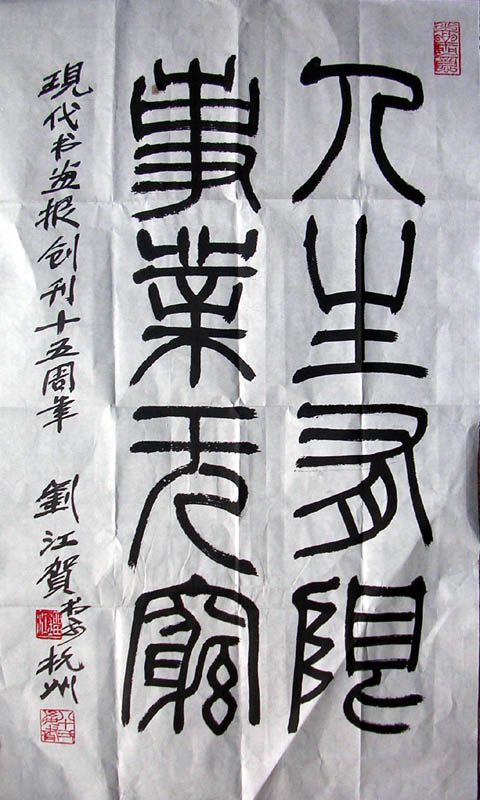 人生有限
事業无窮
現代书画报创刊十五周年 劉江賀书于杭州